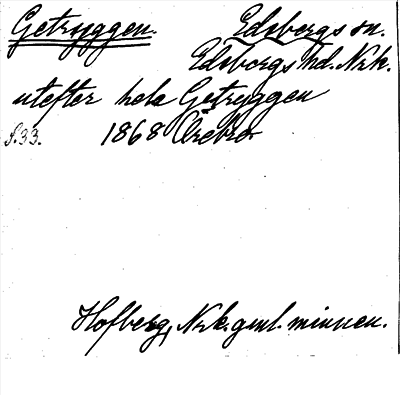 Getryggen. Edsbergs sn.
Edsbergs hd. Nrk.
utefter hela Getryggen
s.33. 1868 Örebro
Hofberg, Nrk. gml. minnen.